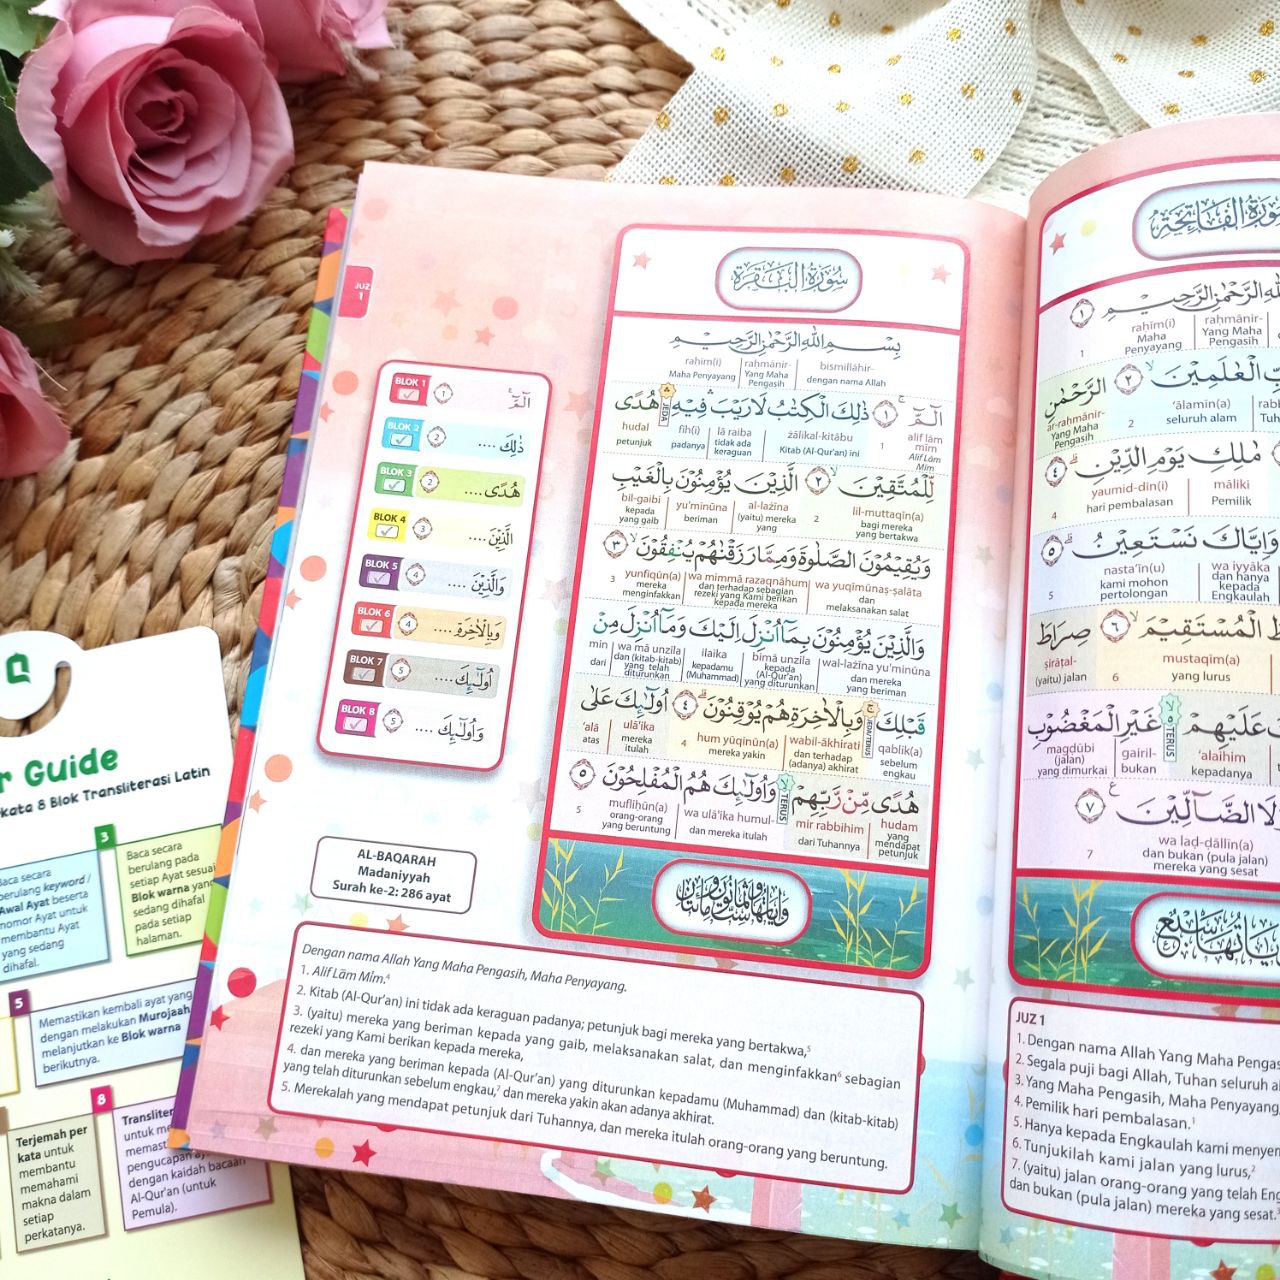 JUZ
1
BLOK 1
الٓمّٓ ۚ ١
BLOK 2
ذٰلِكَ .... ٢
BLOK 3
هُدًى .... ٢
BLOK 4
الَّذِيْنَ .... ٣
BLOK 5
وَالَّذِيْنَ .... ٤
BLOK 6
وَبِالْاٰخِرَةِ .... ٤
BLOK 7
اُولٰۤىِٕكَ .... ٥
BLOK 8
وَاُولٰۤىِٕكَ .... ٥
AL-BAQARAH
Madaniyyah
Surah ke-2: 286 ayat
سُوْرَةُ الْبَقَرَة
بِسْمِ اللّٰهِ الرَّحْمٰنِ الرَّحِيْمِ
rahīm(i) raḥmānir- bismillāhir-
Maha Penyayang Yang Maha dengan nama Allah
Pengasih
الٓمّٓ ۚ ١ ذٰلِكَ الْكِتٰبُ لَا رَيْبَ ۛ فِيْهِ ۛ هُدًى
JEDA
hudal fīh(i) lā raiba żālikal-kitābu 1 alif lām
petunjuk padanya tidak ada Kitab (Al-Qur'an) ini mīm
keraguan Alif Lām
Mim
لِّلْمُتَّقِيْنَ ۙ ٢ الَّذِيْنَ يُؤْمِنُوْنَ بِالْغَيْبِ
bil-gaibi yu'minūna al-lażīna 2 lil-muttaqīn(a)
kepada beriman (yaitu) mereka bagi mereka
yang gaib yang yang bertakwa
وَيُقِيْمُوْنَ الصَّلٰوةَ وَمِمَّا رَزَقْنٰهُمْ يُنْفِقُوْنَ ۙ ٣
3 yunfiqūn(a) wa mimmā razaqnāhum wa yuqīmūnaṣ-ṣalāta
mereka dan terhadap sebagian dan
menginfakkan rezeki yang Kami berikan melaksanakan salat
kepada mereka
وَالَّذِيْنَ يُؤْمِنُوْنَ بِمَآ اُنْزِلَ اِلَيْكَ وَمَآ اُنْزِلَ مِنْ
min wa mā unzila ilaika bimā unzila wal-lażīna yu'minūna
dari dan (kitab-kitab) kepadamu kepada dan mereka
yang telah (Muhammad) (Al-Qur'an) yang beriman
diturunkan yang diturunkan
قَبْلِكَ ۚ وَبِالْاٰخِرَةِ هُمْ يُوْقِنُوْنَ ۗ ٤ اُولٰۤىِٕكَ عَلٰى
'alā ulā'ika 4 hum yūqinūn(a) wabil-ākhirati qablik(a)
atas mereka mereka yakin dan terhadap sebelum
itulah (adanya) akhirat engkau
هُدًى مِّنْ رَّبِّهِمْ ۙ وَاُولٰۤىِٕكَ هُمُ الْمُفْلِحُوْنَ ٥
TERUS
5 mufliḥūn(a) wa ulā'ika humul- mir rabbihim hudam
orang-orang dan mereka itulah dari Tuhannya yang
yang beruntung mendapat
petunjuk
Dengan nama Allah Yang Maha Pengasih, Maha Penyayang.
1. Alif Lām Mim.4
2. Kitab (Al-Qur'an) ini tidak ada keraguan padanya; petunjuk bagi mereka yang bertakwa,5
3. (yaitu) mereka yang beriman kepada yang gaib, melaksanakan salat, dan menginfakkan6 sebagian
rezeki yang Kami berikan kepada mereka,
4. dan mereka yang beriman kepada (Al-Qur'an) yang diturunkan kepadamu (Muhammad) dan (kitab-kitab)
yang telah diturunkan sebelum engkau,7 dan mereka yakin akan adanya akhirat.
5. Merekalah yang mendapat petunjuk dari Tuhannya, dan mereka itulah orang-orang yang beruntung.
سُوْرَةُ الْفَاتِحَة
اللّٰهِ الرَّحْمٰنِ الرَّحِيْمِ ١
1 rahīm(i) raḥmānir-
Maha Yang Maha
Penyayang Pengasih
الْعٰلَمِيْنَ ۙ ٢ الرَّحْمٰنِ
ar-raḥmānir- 2 'ālamīn(a)
Yang Maha seluruh alam
Pengasih
مٰلِكِ يَوْمِ الدِّيْنِ ۗ ٤
4 yaumid-dīn(i) māliki
hari pembalasan Pemilik
وَاِيَّاكَ نَسْتَعِيْنُ ۗ ٥
5 nasta'īn(u) wa iyyāka
kami mohon dan hanya
pertolongan kepada
Engkaulah
الْمُسْتَقِيْمَ ۙ ٦ صِرَاطَ
ṣirāṭal- 6 mustaqīm(a)
(yaitu) jalan yang lurus
عَلَيْهِمْ ۙ غَيْرِ الْمَغْضُوْبِ
TERUS
magḍūbi gairil- 'alaihim
(jalan) bukan kepadanya
yang dimurkai
وَلَا الضَّاۤلِّيْنَ ٧
7 wa laḍ-ḍāllīn(a)
dan bukan (pula jalan)
mereka yang sesat
JUZ 1
1. Dengan nama Allah Yang Maha Pengas
2. Segala puji bagi Allah, Tuhan seluruh a
3. Yang Maha Pengasih, Maha Penyayang,
4. Pemilik hari pembalasan.1
5. Hanya kepada Engkaulah kami menyem
6. Tunjukilah kami jalan yang lurus,2
7. (yaitu) jalan orang-orang yang telah Eng
dan bukan (pula jalan) mereka yang sesat.3
r Guide
kata 8 Blok Transliterasi Latin
Baca secara
berulang keyword /
Awal Ayat beserta
nomor Ayat untuk
membantu Ayat
yang sedang
dihafal.
3
Baca secara
berulang pada
setiap Ayat sesuai
Blok warna yang
sedang dihafal
pada setiap
halaman.
5
Memastikan kembali ayat yang
dengan melakukan Murojaah
melanjutkan ke Blok warna
berikutnya.
Terjemah per
kata untuk
membantu
memahami
makna dalam
setiap
perkatanya.
8
Transliter
untuk me
memast
pengucapan
dengan kaidah bacaan
Al-Qur'an (untuk
Pemula).